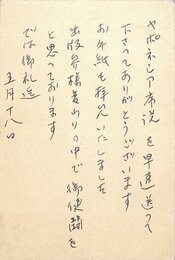 ヤポネシア序説を早速送って
下さってありがとうございます
お手紙も拝見いたしました
出版界様変わりの中で御健闘を
と思っております
では御礼迄
五月十八日